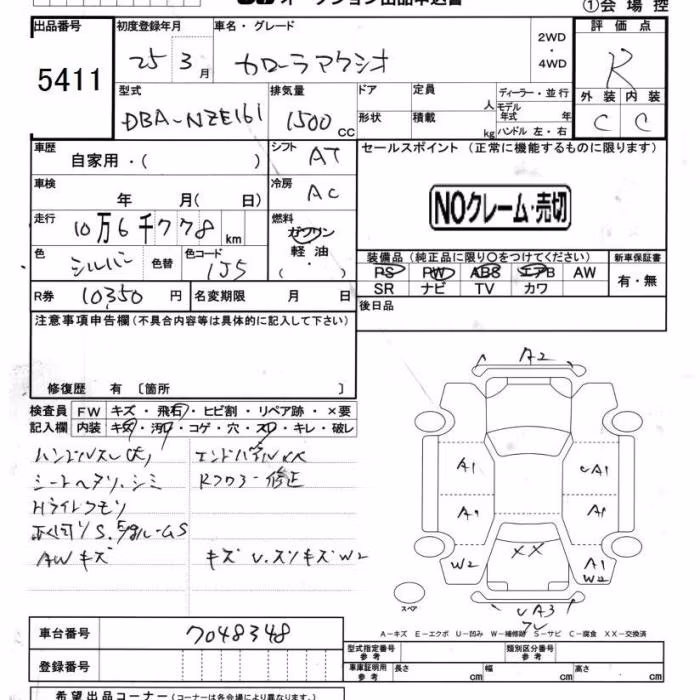 オークション出品申込書
①会場控
出品番号
5411
初度登録年月 車名・グレード
25 3月 カローラアクシオ
2WD
・
4WD
評価点
R
外装 内装
C C
型式 排気量 ドア 定員
DBA-NZE161 1500cc 人
形状 積載 kg
ディーラー・並行
モデル年式 年
ハンドル 左・右
車歴 自家用・( )
シフト AT
セールスポイント (正常に機能するものに限ります)
車検 年 月( 日)
冷房 AC
NOクレーム・売切
走行 10万6千778 km
燃料 ガソリン
軽油
・( )
色 シルバー 色替 色コード 1J5
装備品(純正品に限り○をつけてください) 新車保証書
PS PW ABS エアB AW
SR ナビ TV カワ
有・無
R券 10350円 名変期限 月 日
後日品
注意事項申告欄(不具合内容等は具体的に記入して下さい)
修復歴 有 〔箇所 〕
検査員 FW キズ・飛石・ヒビ割・リペア跡・×要
記入欄 内装 キズ・汚レ・コゲ・穴・スレ・キレ・破レ
ハンドルスレ(大) エンドパネルXX
シートヘタリ、シミ Rフロアー修正
Hライトクモリ
AWキズ キズ U.スリキズW2
A2
A1 A1
A1 A1
W2 XX A1
W2
スペア
UA3
A-キズ E-エクボ U-凹み W-補修跡 S-サビ C-腐食 XX-交換済
車台番号 7048348
登録番号
型式指定番号 参考 類別区分番号 参考
車庫証明用 参考 長さ cm 幅 cm 高さ cm
希望出品コーナー(コーナーは各会場によって異なります。)